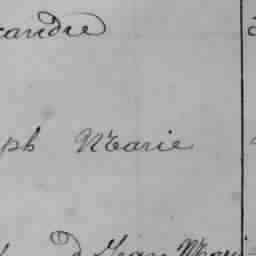 candre
ph Marie
Jean Mari